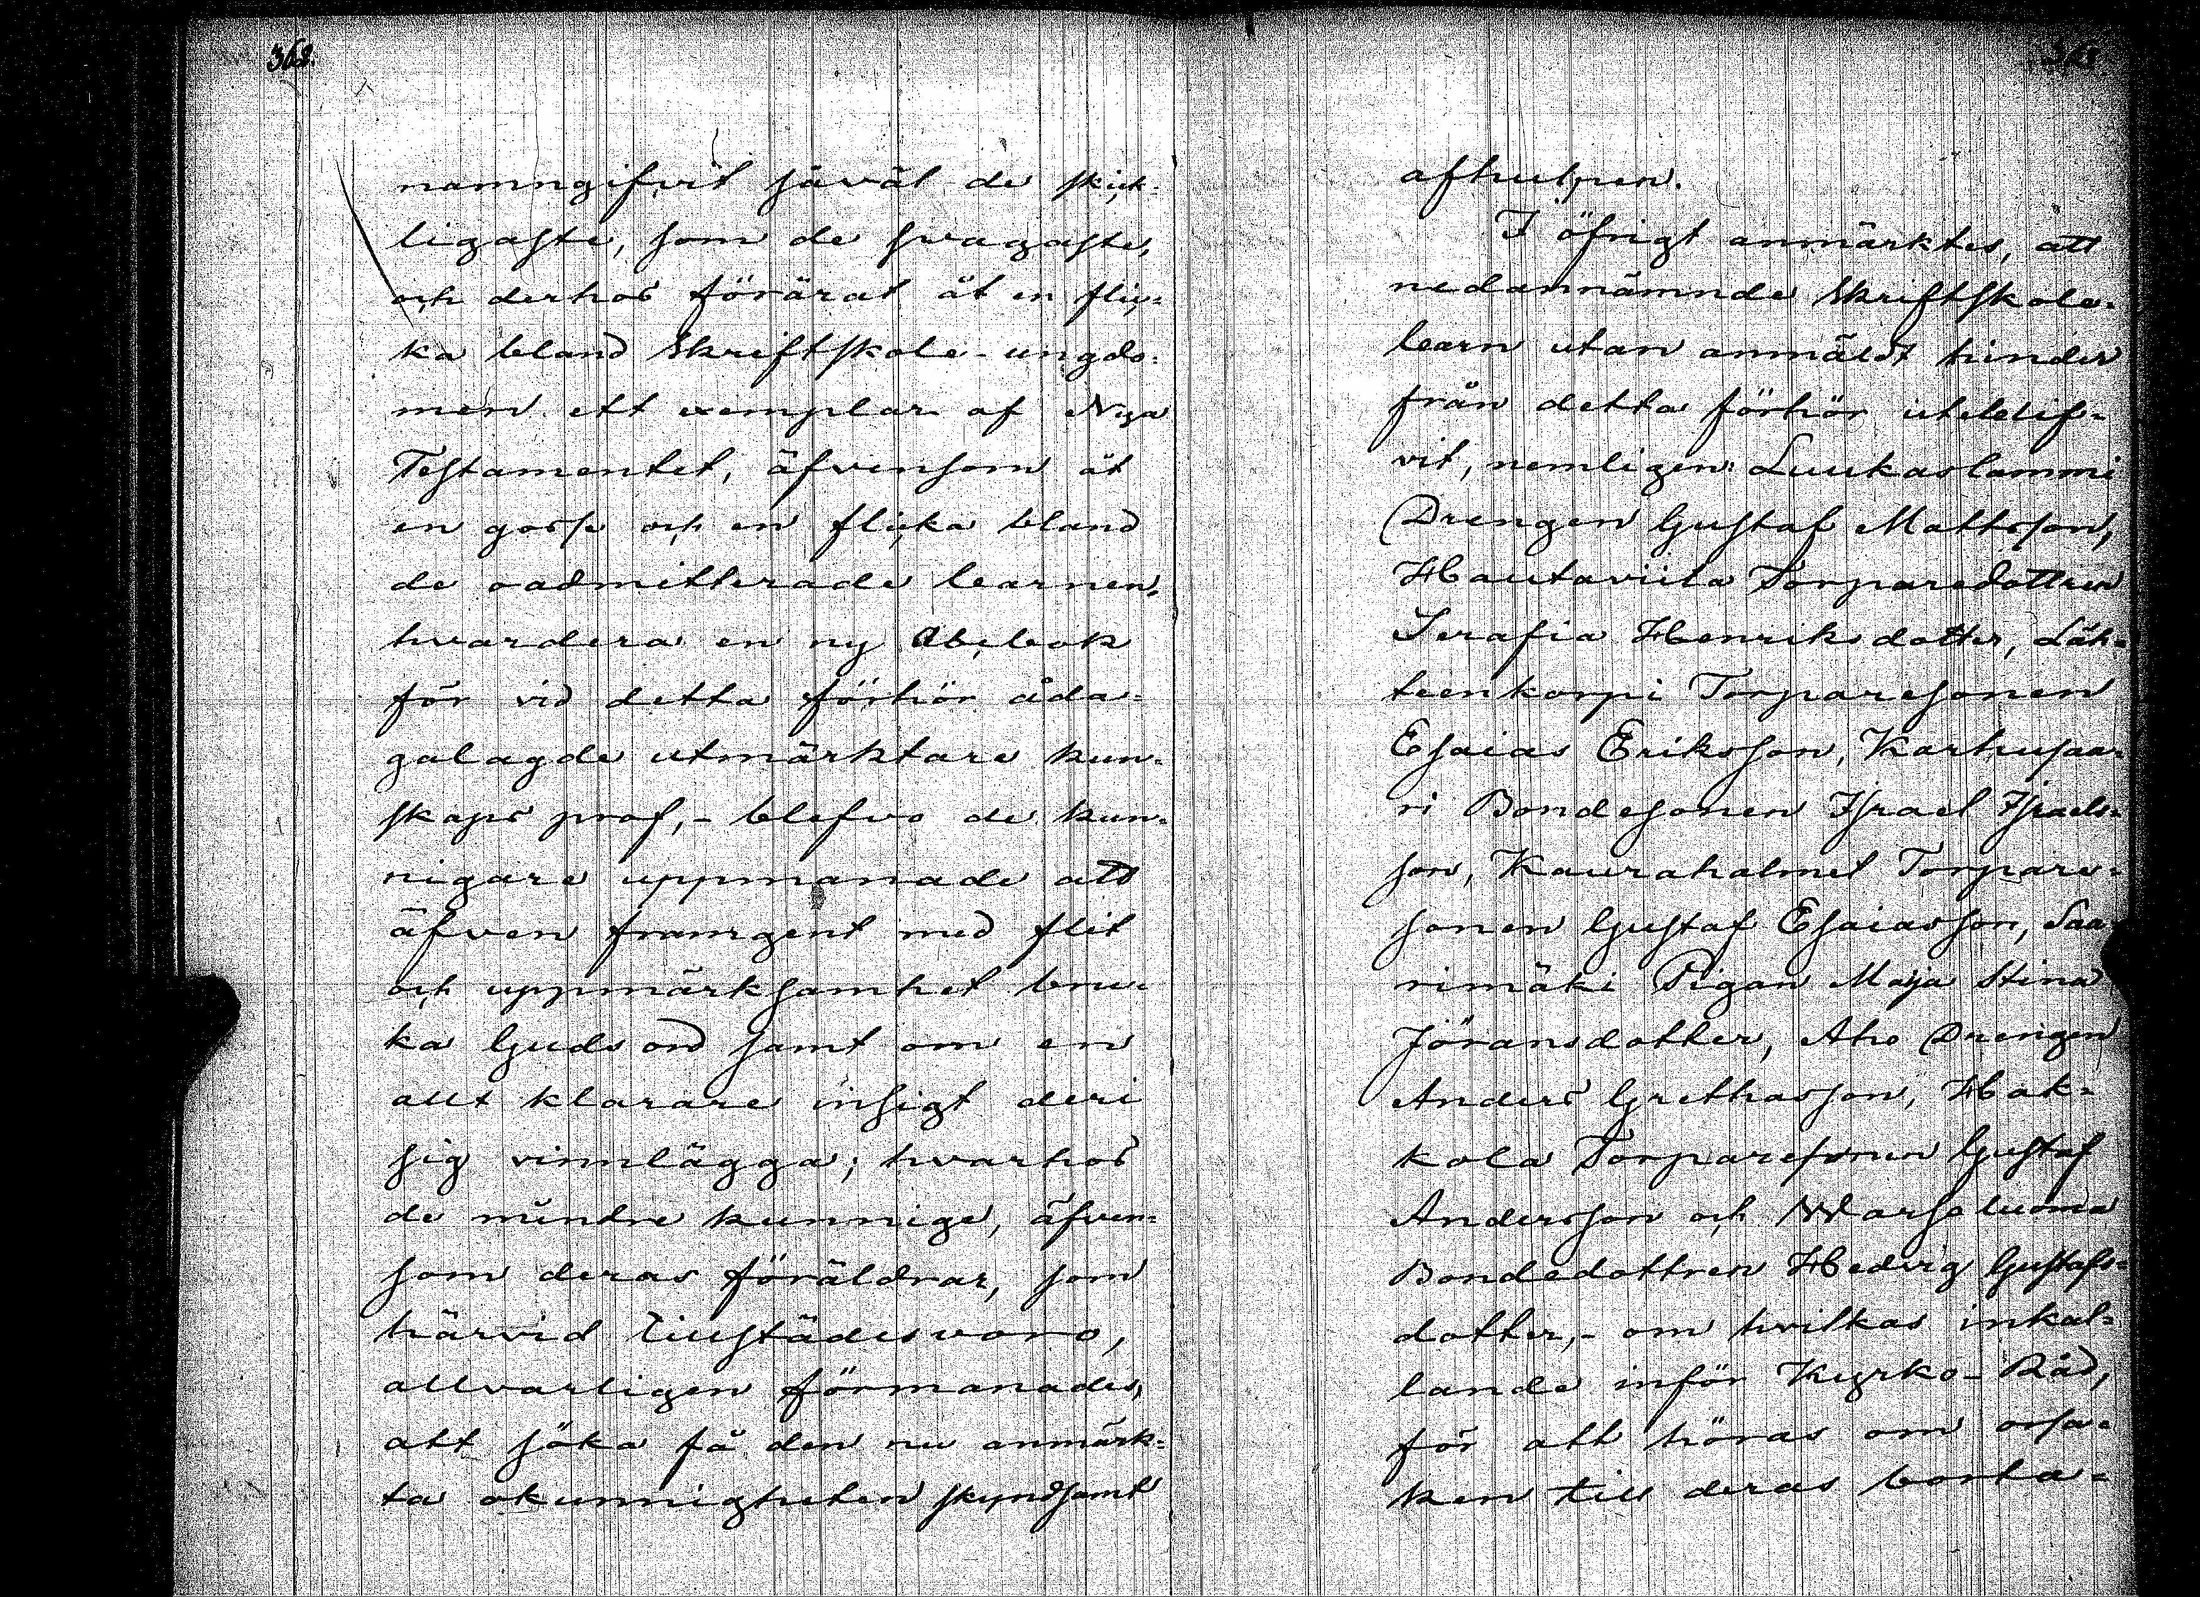 362.
namngifvit såväl de skick-
ligaste, som de svagaste,
och derhos förärat åt en flic-
ka bland Skriftskole-ungdo-
men ett exemplar af Nya
Testamentet, äfvensom åt
en gosse och en flicka bland
de oadmitterade barnen,
hvardera en ny Abcbok
för vid detta förhör åda-
galagde utmärktare kun-
skaps prof,- blefvo de kun-
nigare uppmanade att
äfven framgent med flit
och uppmärksamhet bru-
ka Guds ord samt om en
allt klarare insigt deri
sig vinnlägga; hvarhos
de mindre kunnige, äfven-
som deras föräldrar, som
härvid tillstädesvoro,
allvarligen förmanades,
att söka få den nu anmärk-
ta okunnigheten skyndsamt
363.
afhulpen.
I öfrigt anmärktes, att
nedannämnde Skriftskole-
barn utan anmäldt hinder
från detta förhör uteblif-
vit, nemligen: Luukaslammi
Drengen Gustaf Mattsson,
Hautaviita Torparedottren
Serafia Henriksdotter, Läh-
teenkorpi Torparesonen
Esaias Eriksson, Karhusaa-
ri Bondesonen Israel Israels-
son, Kauraholmet Torpare-
sonen Gustaf Esaiasson, Saa-
rimäki Pigan Maja Stina
Jöransdotter, Aho Drengen
Anders Grethasson, Hak-
kola Torparesonen Gustaf
Andersson och Warsaluoma
Bondedottren Hedvig Gustafs-
dotter,- om hvilkas inkal-
lande inför Kyrko-Råd,
för att höras om orsa-
ken till deras borta-